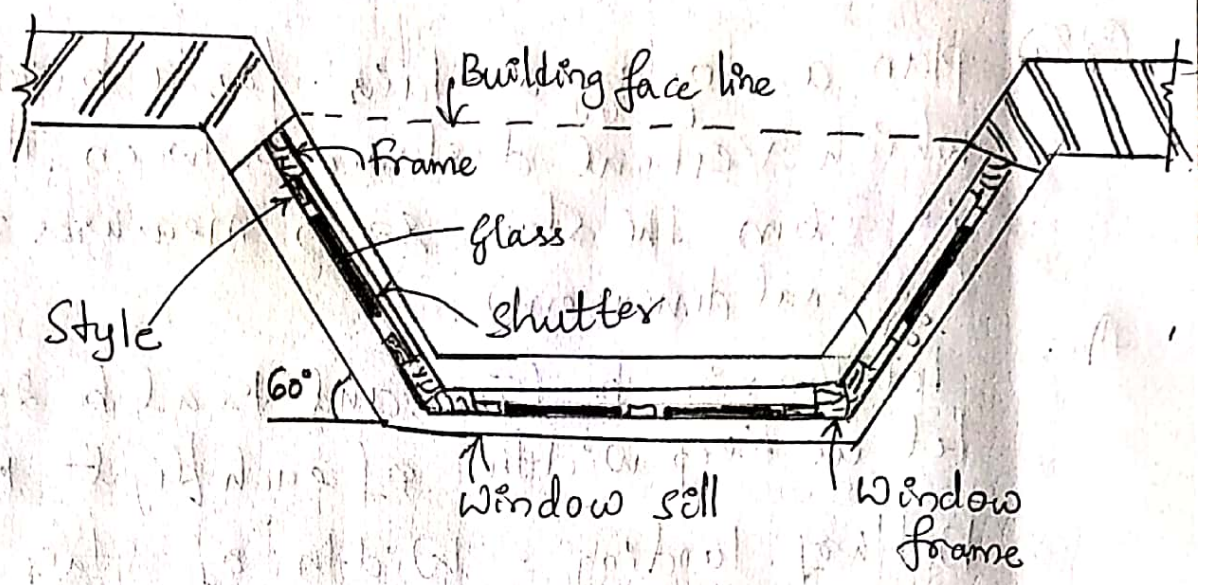 Building face line
Frame
Glass
Shutter
Style
60°
Window sill
Window
frame